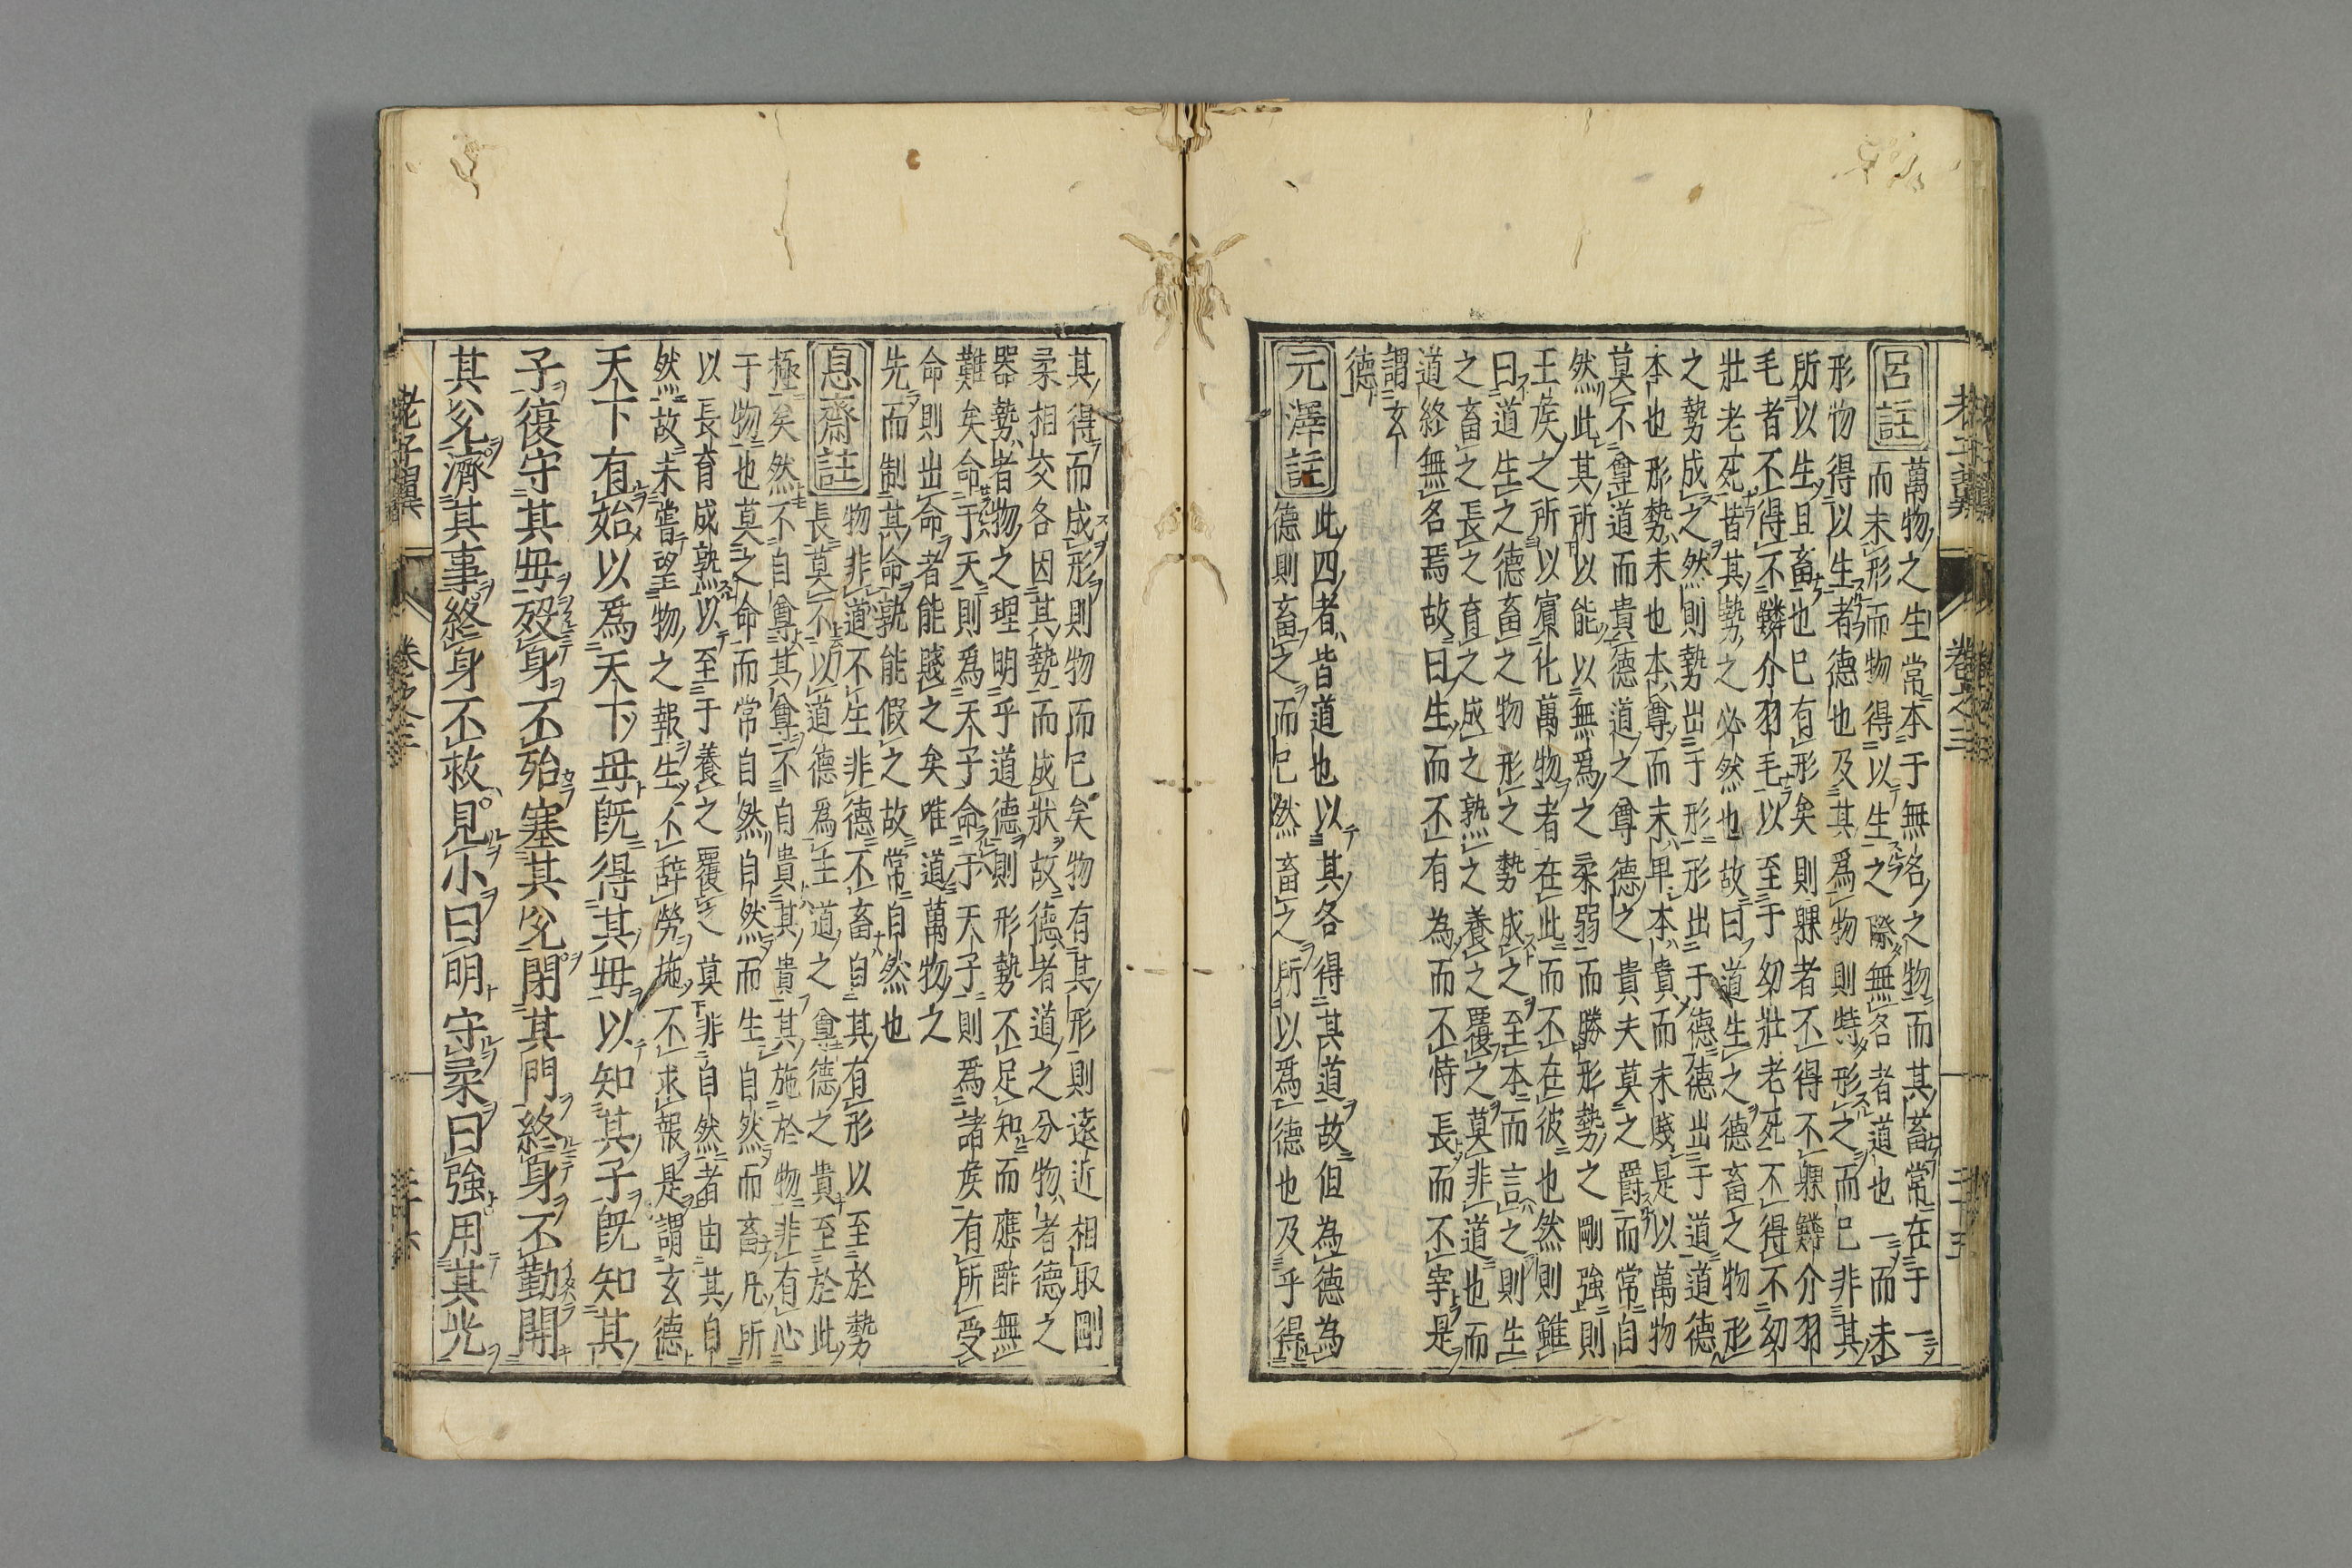 呂註
萬物之生常本于無名之物而其畜常在于一
而未形而物得以生之際無名者道也一而未
形物得以生者德也及其爲物則特形之而已非其
所以生且畜也已有形矣則躶者不得不躶鱗介羽
毛者不得不鱗介羽毛以至于幼壯老死不得不幼
壯老死皆其勢之必然也故曰道生之德畜之物形
之勢成之然則勢出于形形出于德德出于道道德
本也形勢末也本尊而末卑本貴而末賤是以萬物
莫不尊道而貴德道之尊德之貴夫莫之爵而常自
然此其所以能以無爲之柔弱而勝形勢之剛強則
王侯之所以賓化萬物者在此而不在彼也然則雖
曰道生之德畜之物形之勢成之至本而言之則生
之畜之長之育之成之熟之養之覆之莫非道也而
道終無名焉故曰生而不有為而不恃長而不宰是
謂玄
德
元澤註
此四者皆道也以其各得其道故但為德為
德則畜之而已然畜之所以爲德也及乎得
老子翼 卷之三 三十五
其得而成形則物而已矣物有其形則遠近相取剛
柔相交各因其勢而成狀故德者道之分物者德之
器勢者物之理明乎道德則形勢不足知而應酢無
難矣命于天則爲天子命于天子則爲諸侯有所受
命則出命者能賤之矣唯道萬物之
先而制其命孰能假之故常自然也
息齋註
物非道不生非德不畜自其有形以至於勢
長莫不以道德爲主道之尊德之貴至於此
極矣然不自尊其尊不自貴其貴其施於物非有心
于物也莫之命而常自然自然而生自然而畜凡所
以長育成熟以至于養之覆之莫非自然者由其自
然故未嘗望物之報生不辭勞施不求報是謂玄德
天下有始以爲天下母旣得其母以知其子旣知其
子復守其母歿身不殆塞其兌閉其門終身不勤開
其兌濟其事終身不救見小曰明守柔曰強用其光
老子翼 卷之三